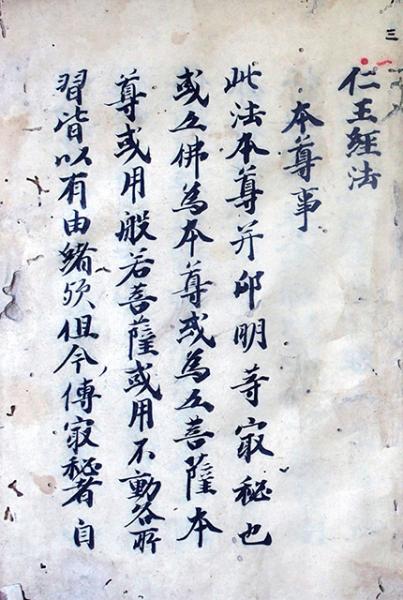 三
仁王経法
本尊事
此法本尊并印明等最秘也
或五佛為本尊或為五菩薩本
尊或用般若菩薩或用不動各所
習皆以有由緒歟但今傳最秘者自